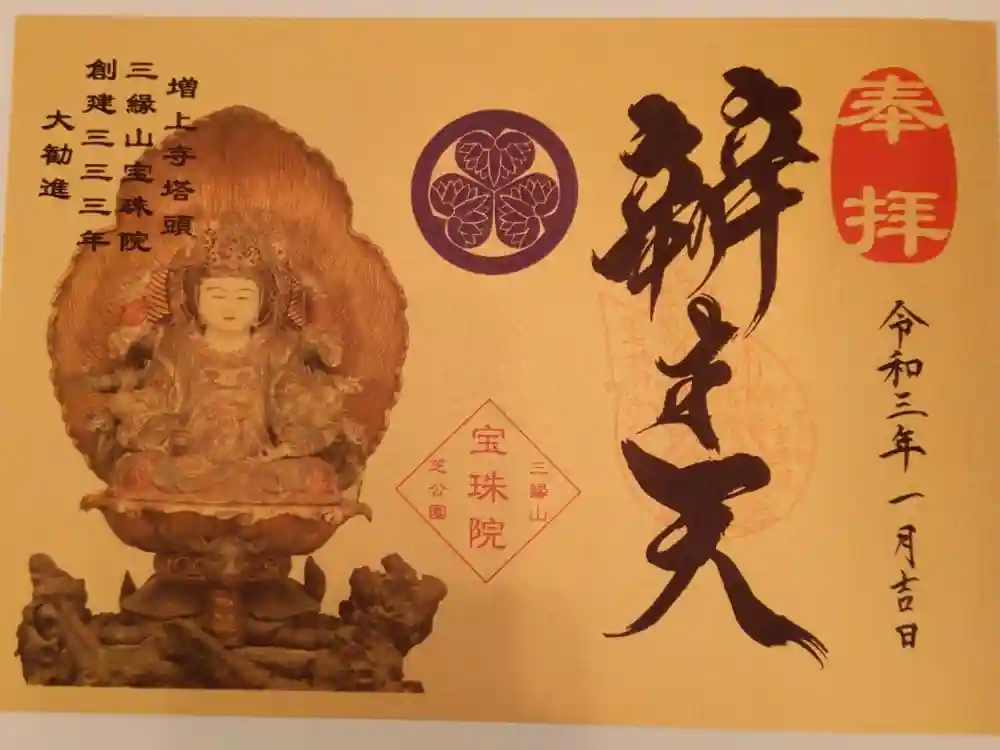 奉拝
令和三年一月吉日
辯才天
三緣山
宝珠院
芝公園
増上寺塔頭
三緣山宝珠院
創建三三三年
大勧進